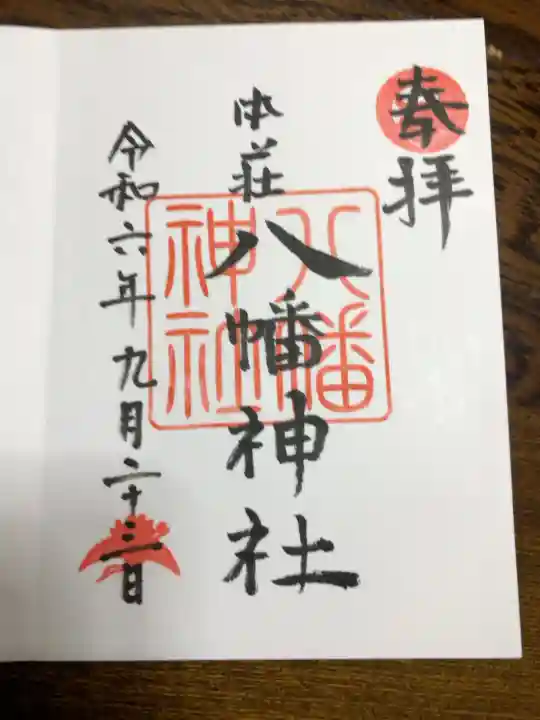 奉拝
本荘
八幡神社
八幡神社
令和六年九月二十三日